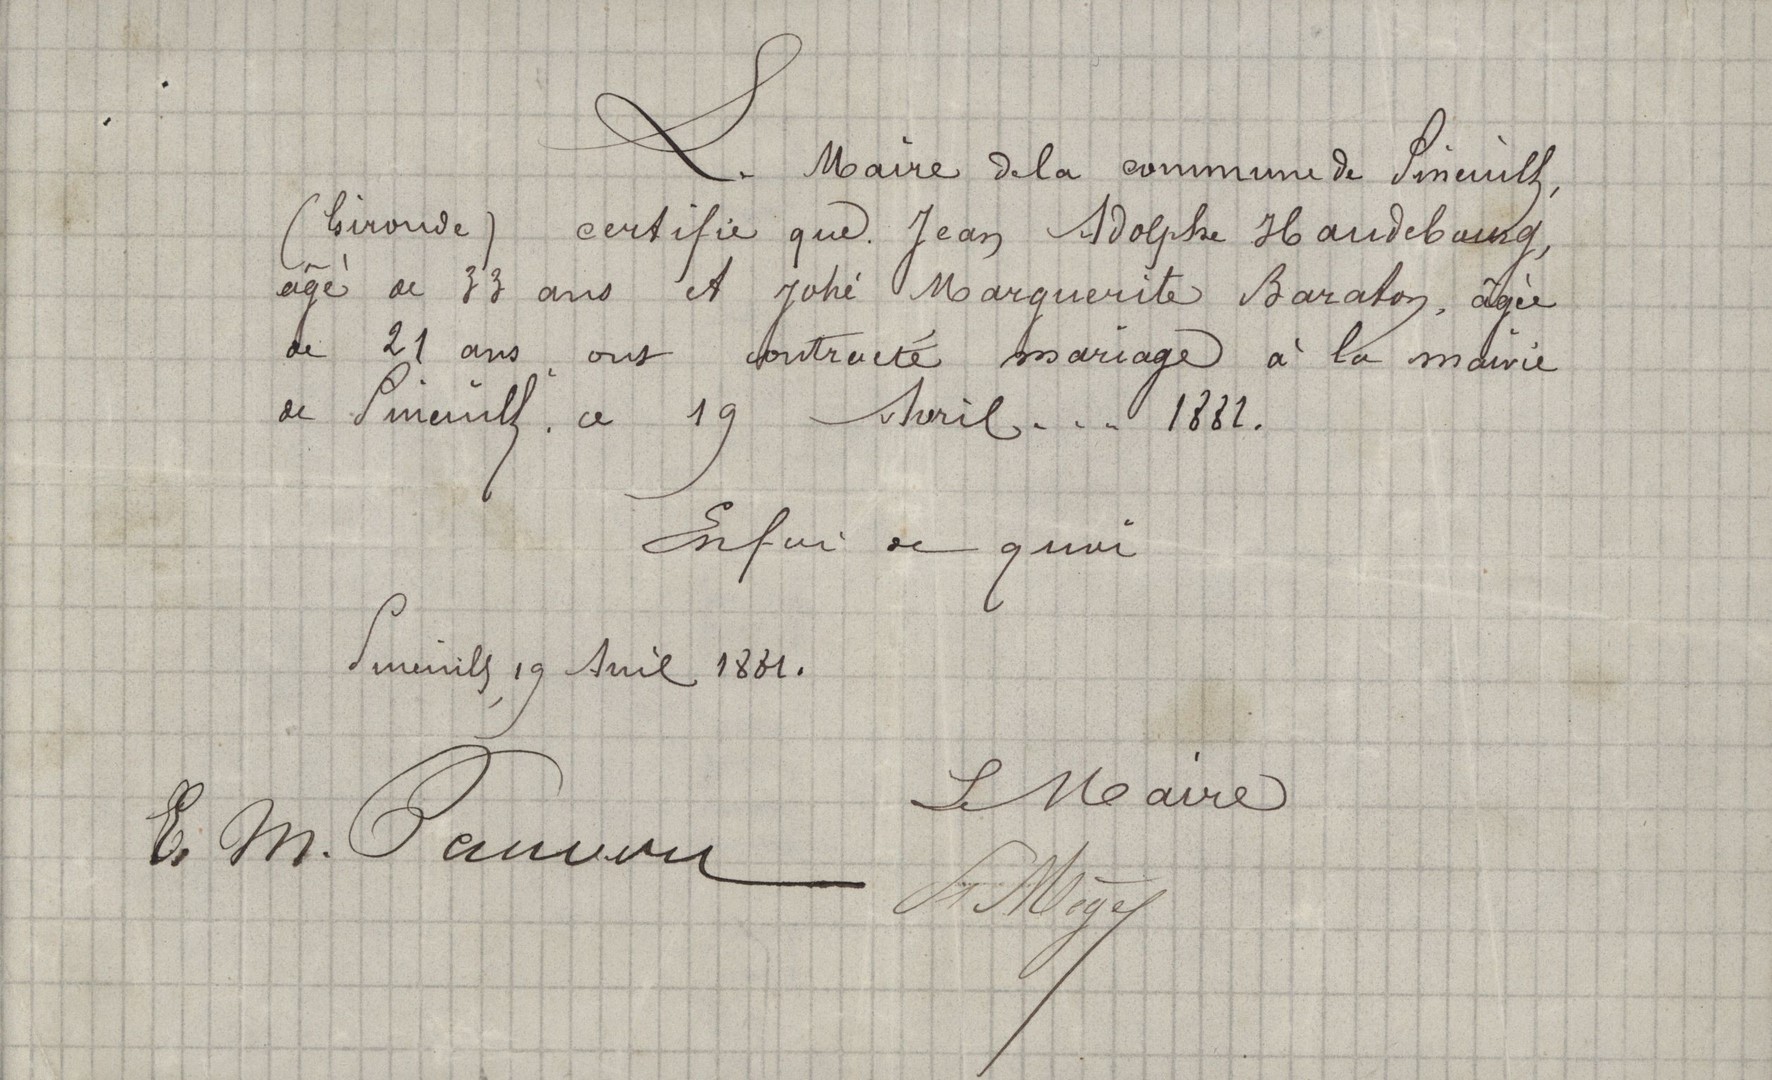 Le Maire de la commune de Pineuilh,
(Gironde) certifie que Jean Adolphe Haudebourg,
âgé de 33 ans et Marguerite Baraton, âgée
de 21 ans, ont contracté mariage à la mairie
de Pineuilh, ce 19 Avril
En foi de quoi
Pineuilh, 19 Avril
Le Maire
E. M.